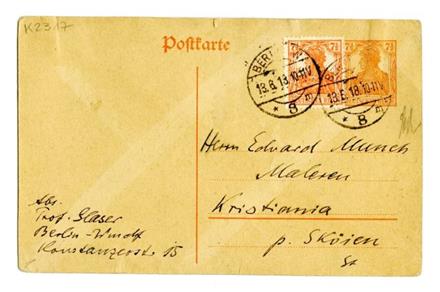 K 23.17
Postkarte
7½ 7½ 7½ 7½
BERLIN W
13.6.18.10-11V
* 8 e
13.6.18.10-11V
* 8 e
Herrn Edvard Munch
Maleren
Kristiania
p. Sköien
St
Abs.
Prof. Glaser
Berlin-Wmdf
Konstanzerstr. 15